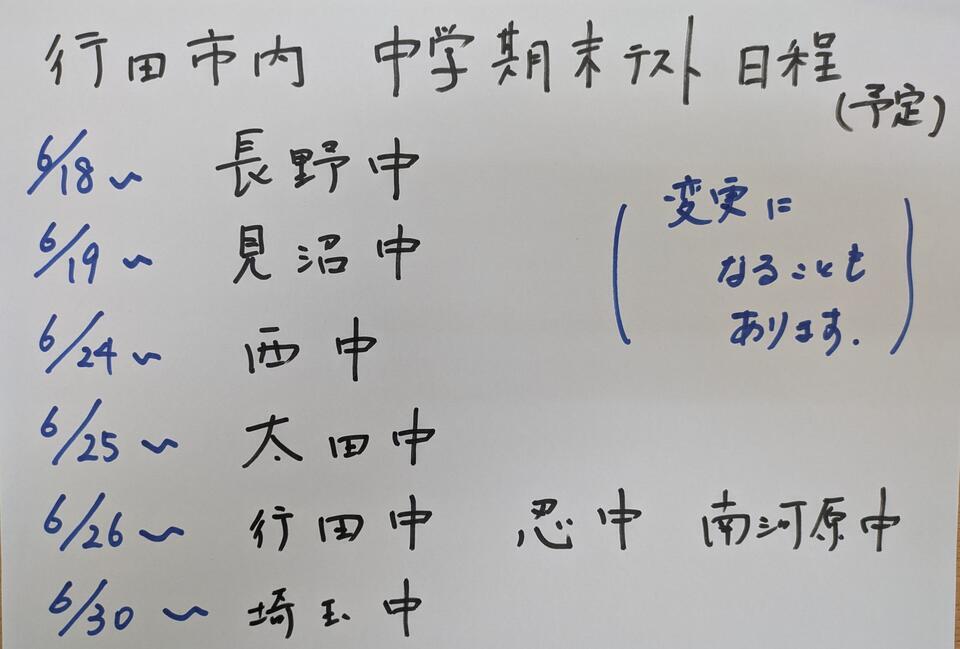 行田市内 中学期末テスト日程
(予定)
6/18~ 長野中
6/19~ 見沼中
(変更に
なることも
あります.)
6/24~ 西中
6/25~ 太田中
6/26~ 行田中 忍中 南河原中
6/30~ 埼玉中